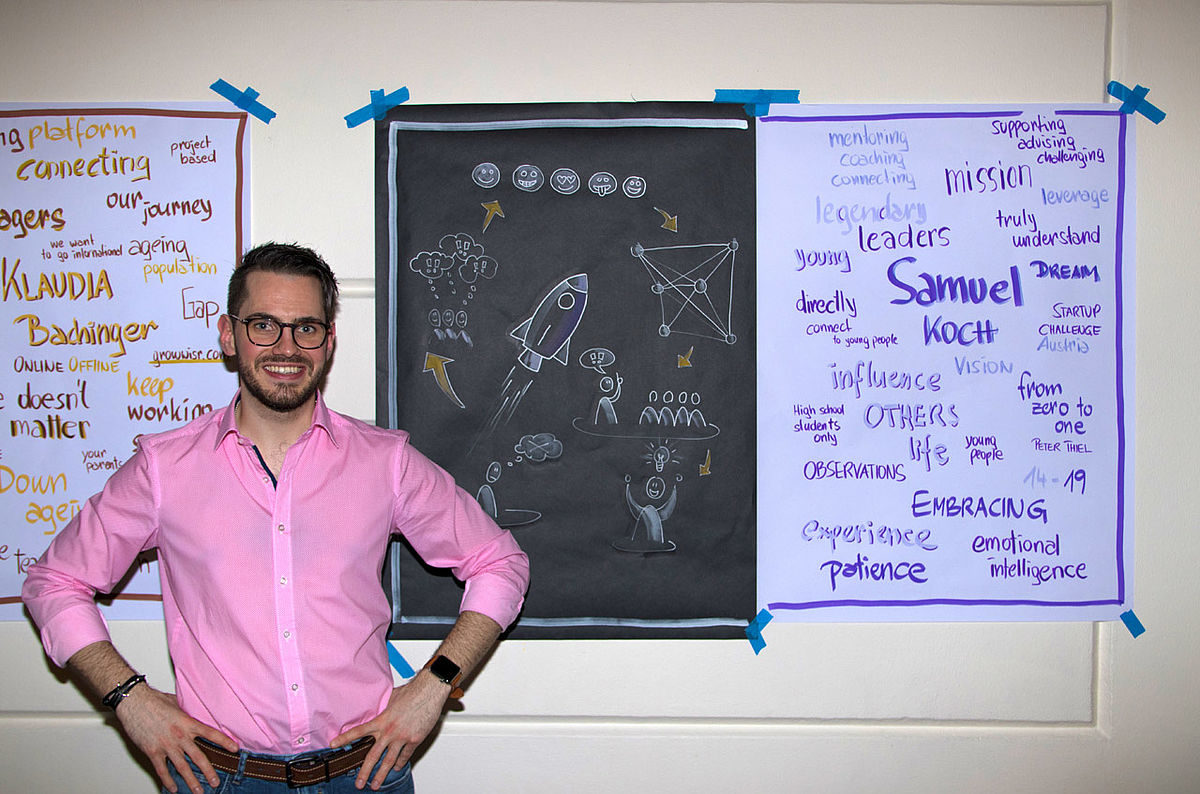 ng platform
connecting
project
based
agers
our
journey
we want
to go international
ageing
population
KLAUDIA
Gap
Bachinger
ONLINE OFFLINE
growwisr.co
doesn't
matter
keep
working
your
parents
Down
agei
mentoring
coaching
connecting
supporting
advising
challenging
mission
leverage
legendary
leaders
truly
understand
young
Samuel
Koch
DREAM
directly
connect
to young people
STARTUP
CHALLENGE
Austria
VISION
influence
from
zero to
one
PETER THIEL
High school
students
only
OTHERS
life
young
people
OBSERVATIONS
14-19
EMBRACING
experience
patience
emotional
intelligence